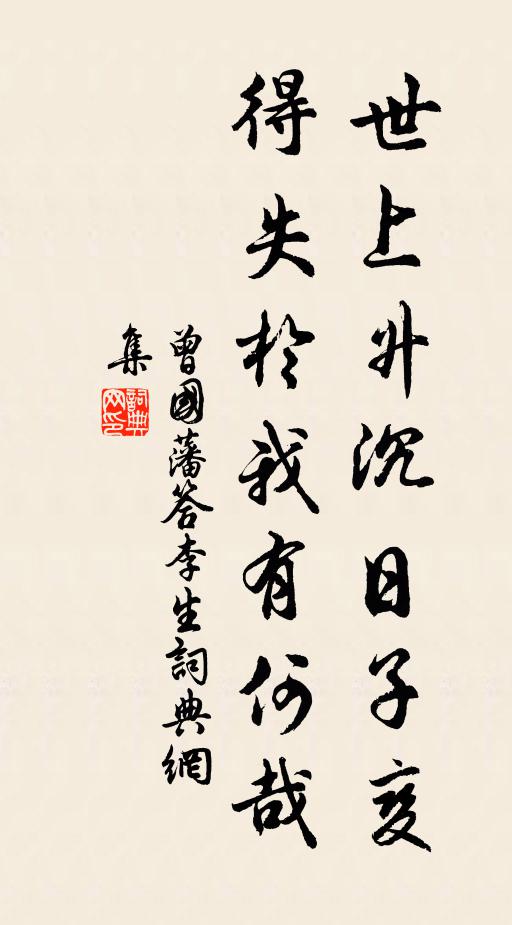 世上升沉日子變
得失於我有何哉
曾國藩答李生詞典網
集
詞典
网印